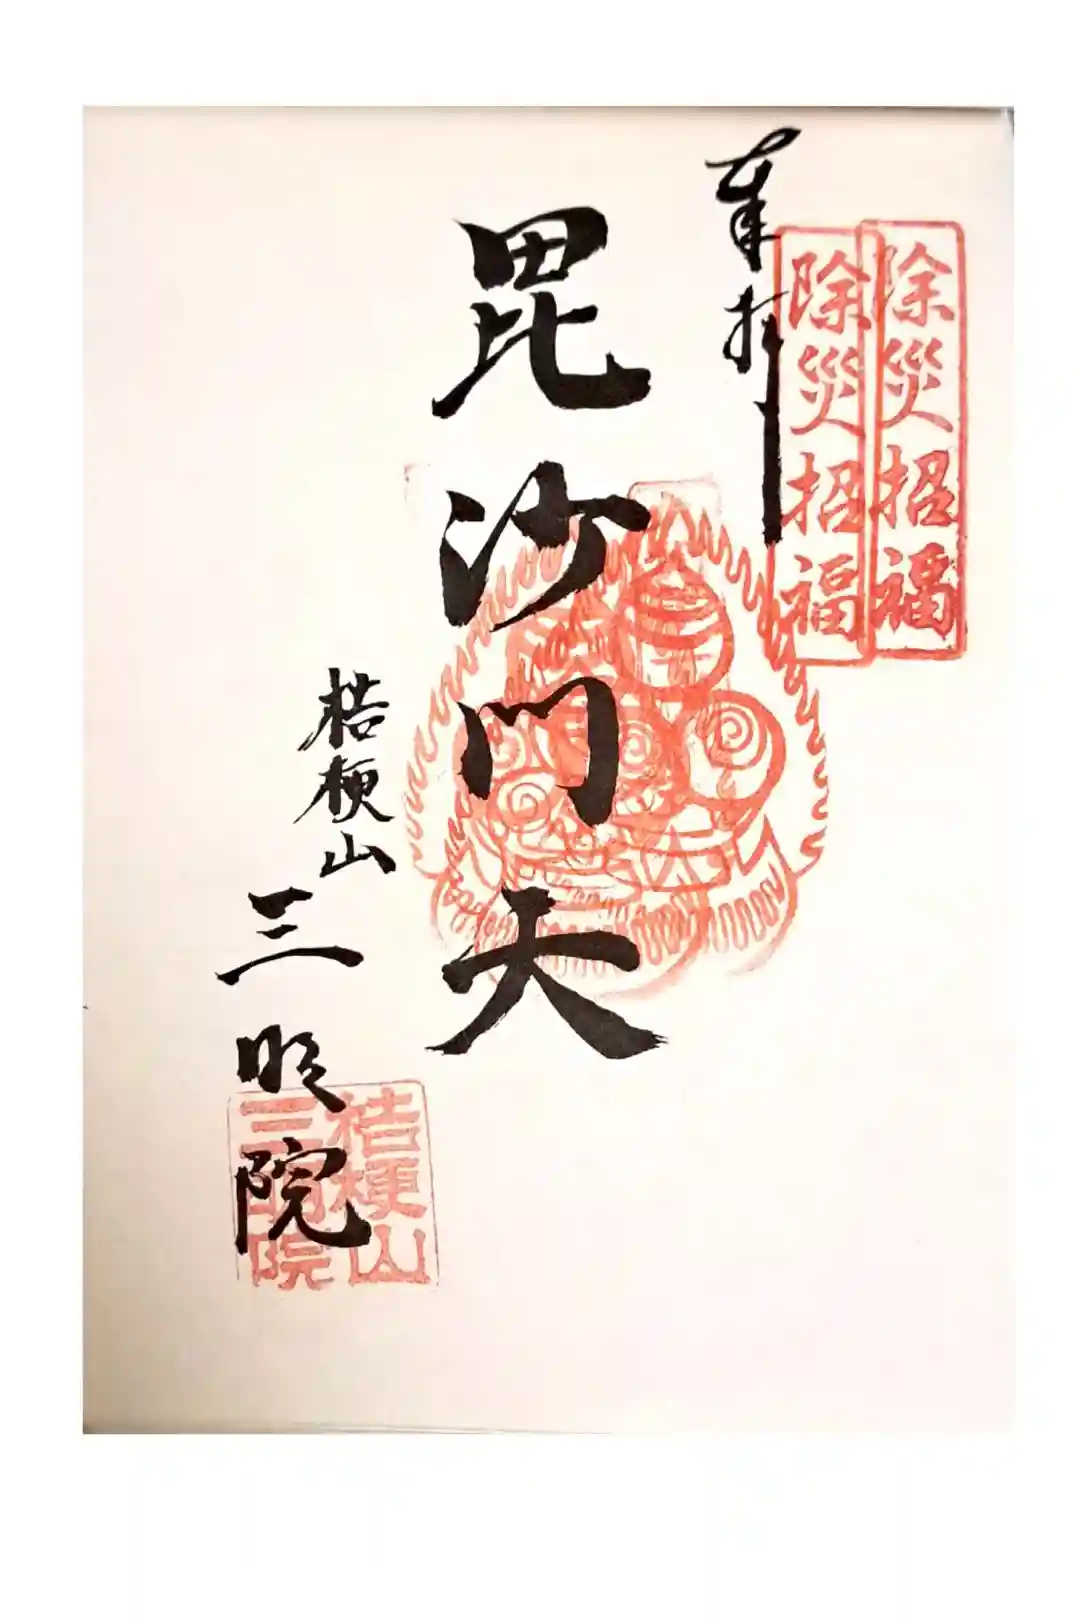 奉拝
除災招福
除災招福
毘沙門天
桔梗山
三明院
桔梗山
三明院